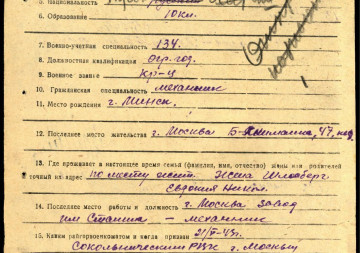 5. Национальность русский
6. Образование 10 кл.
7. Военно-учетная специальность 134.
8. Должностная квалификация огр. год.
9. Военное звание кр-ц
10. Гражданская специальность механик
11. Место рождения г. Минск.
12. Последнее место жительства г. Москва Б-
13. Где проживает в настоящее время семья (фамилия, имя, отчество) жены или родителей
точный их адрес по месту жит. Жена
Евдокия
14. Последнее место работы и должность г. Москва завод
им Сталина - механик
15. Каким райгорвоенкоматом и когда призван 21/V-43г.
Сокольническим РВК г. Москвы